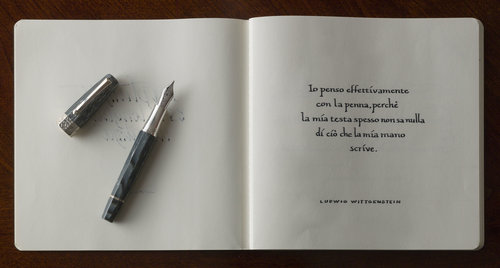 Io penso effettivamente
con la penna, perché
la mia testa spesso non sa nulla
di ciò che la mia mano
scrive.
LUDWIG WITTGENSTEIN